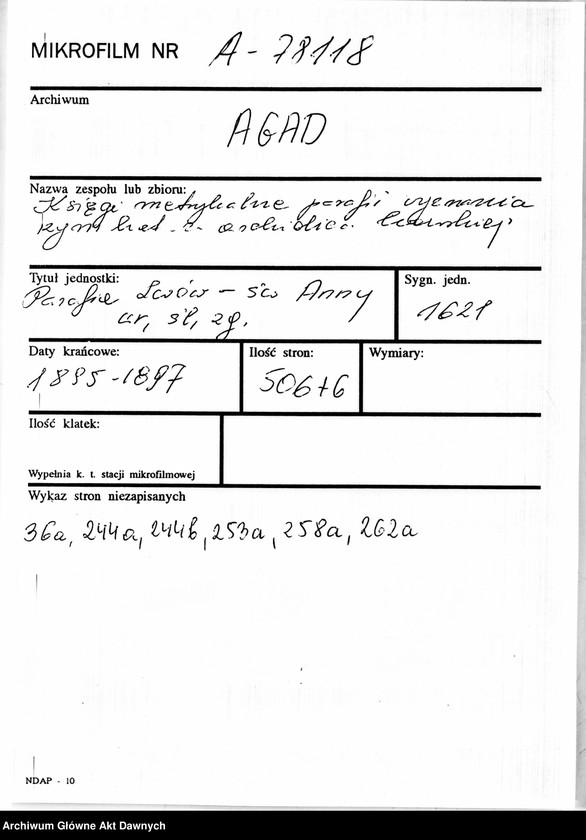 MIKROFILM NR A-78118
Archiwum
AGAD
Nazwa zespołu lub zbioru:
Księgi metrykalne parafii wyznania
rzym. kat. z archidiec. lwowskiej
Tytuł jednostki:
Parafia Lwów - św Anny
ur, śl, zg.
Sygn. jedn.
1621
Daty krańcowe:
1895-1897
Ilość stron:
506+6
Wymiary:
Ilość klatek:
Wypełnia k. t. stacji mikrofilmowej
Wykaz stron niezapisanych
36a, 244a, 244b, 253a, 258a, 262a
NDAP - 10
Archiwum Główne Akt Dawnych